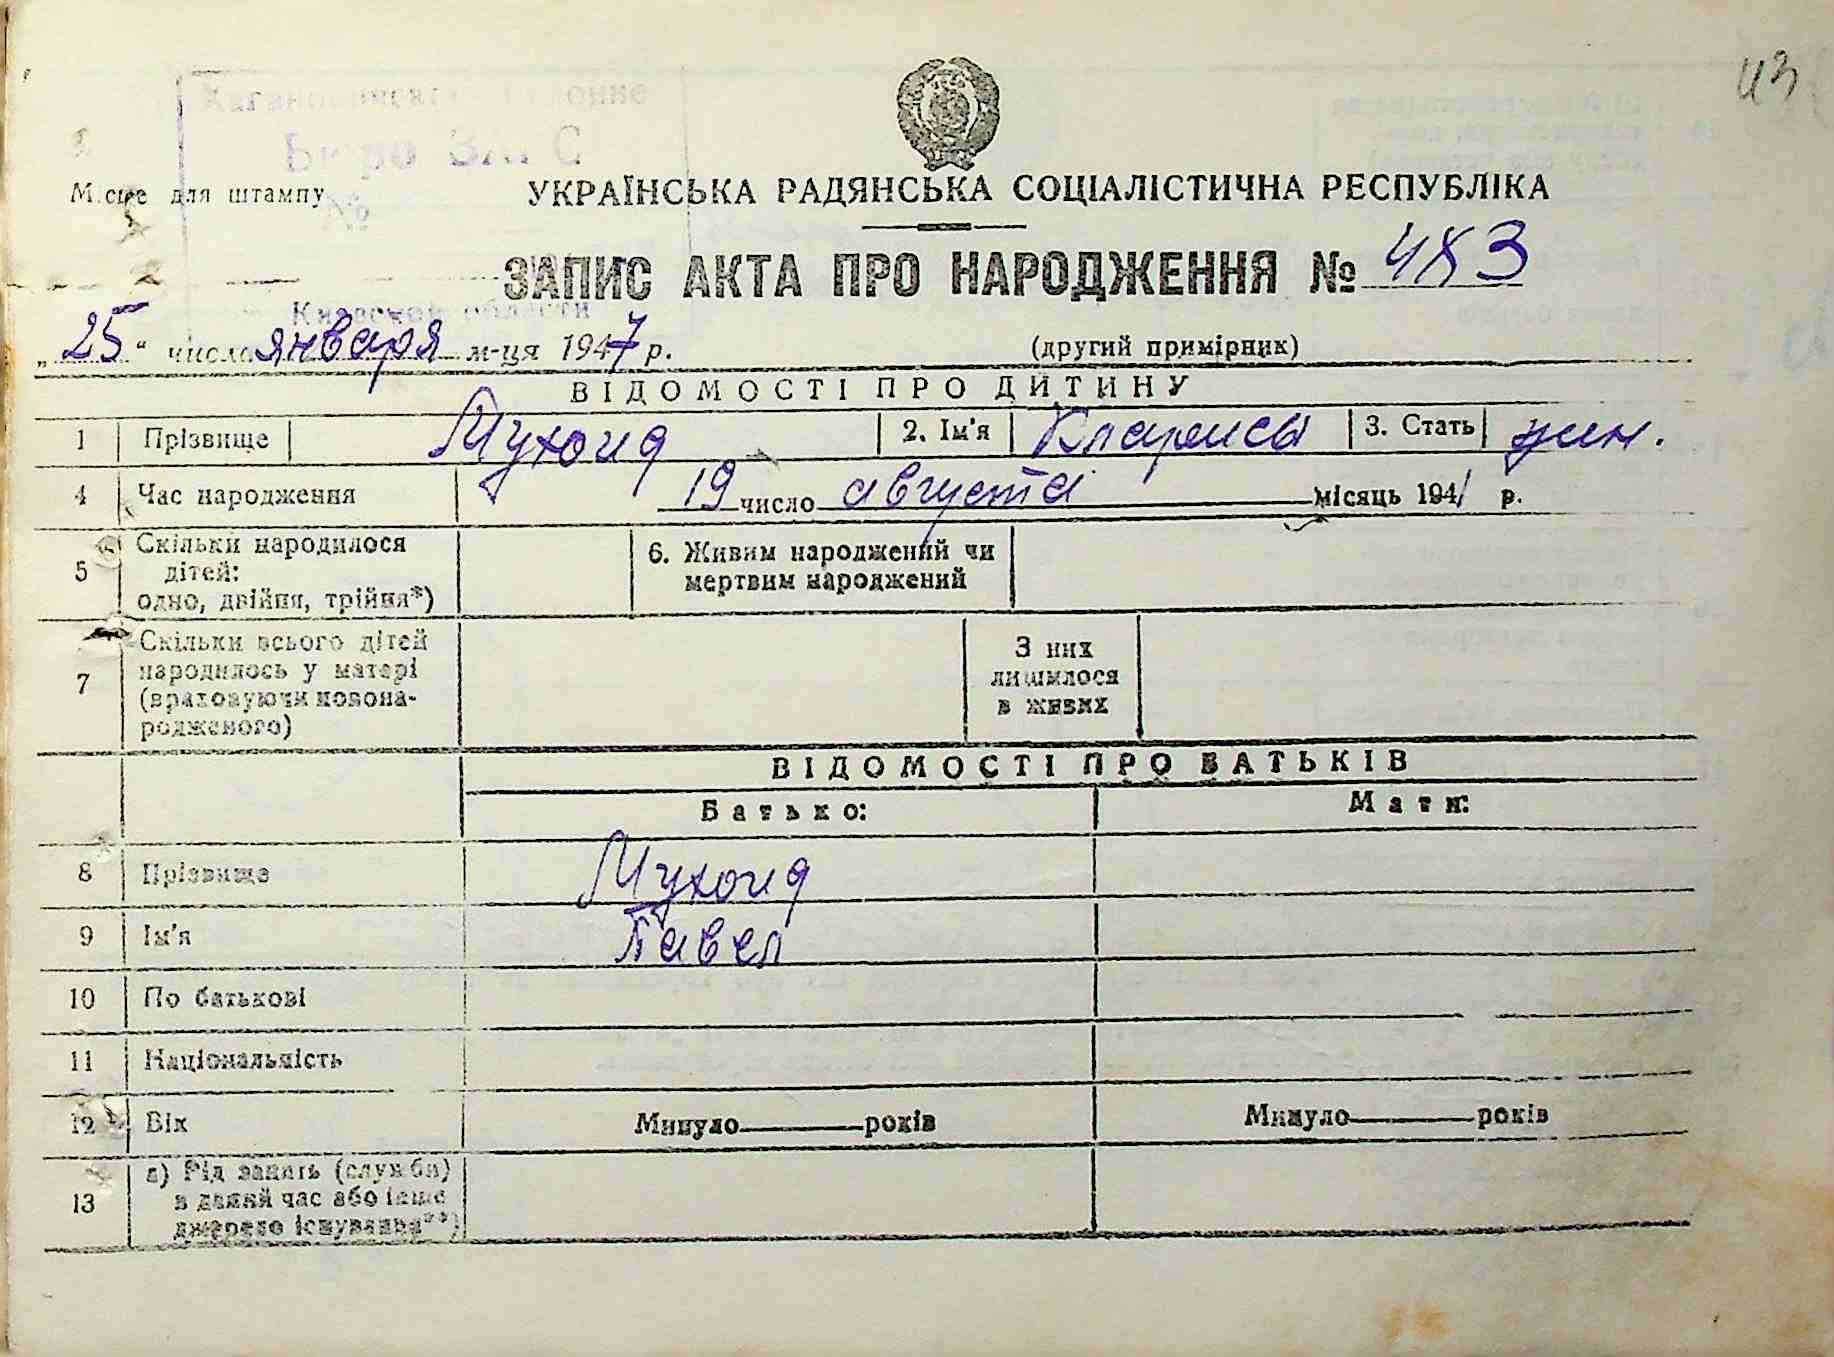 43
Кагановическ районне
Бюро ЗАГС
Місце для штампу
№
УКРАЇНСЬКА РАДЯНСЬКА СОЦІАЛІСТИЧНА РЕСПУБЛІКА
ЗАПИС АКТА ПРО НАРОДЖЕННЯ № 483
Киевской области
„25“ число января м-ця 1947 р.
(другий примірник)
ВІДОМОСТІ ПРО ДИТИНУ
1 Прізвище Мухоид 2. Ім'я Кларисы 3. Стать
4 Час народження 19 число августа місяць 1941 р.
5 Скільки народилося дітей: одно, двійня, трійня*) 6. Живим народжений чи мертвим народжений
7 Скільки всього дітей народилось у матері (враховуючи новонародженого) З них лишилося в живих
ВІДОМОСТІ ПРО БАТЬКІВ
Батько: Мати:
8 Прізвище Мухоид
9 Ім'я Павел
10 По батькові
11 Національність
12 Вік Минуло років Минуло років
13 а) Рід занять (служби) в даний час або інше джерело існування**)